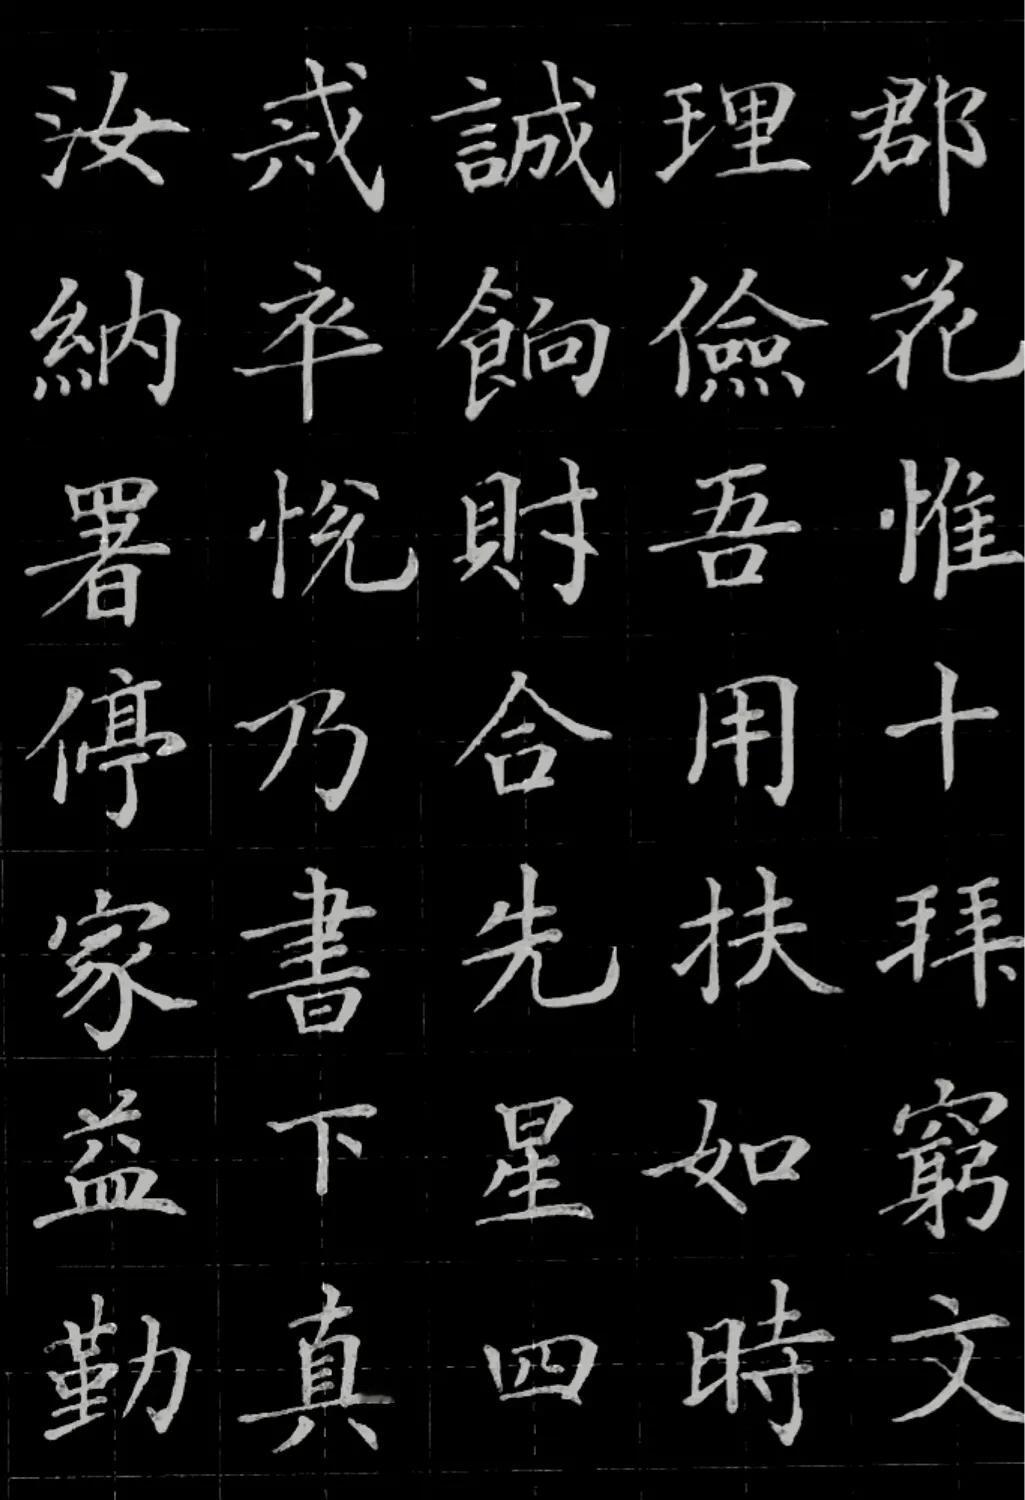 郡花惟十拜窮文
理儉吾用扶如時
誠餉財合先星四
戒卒悅乃書下真
汝納署停家益勤